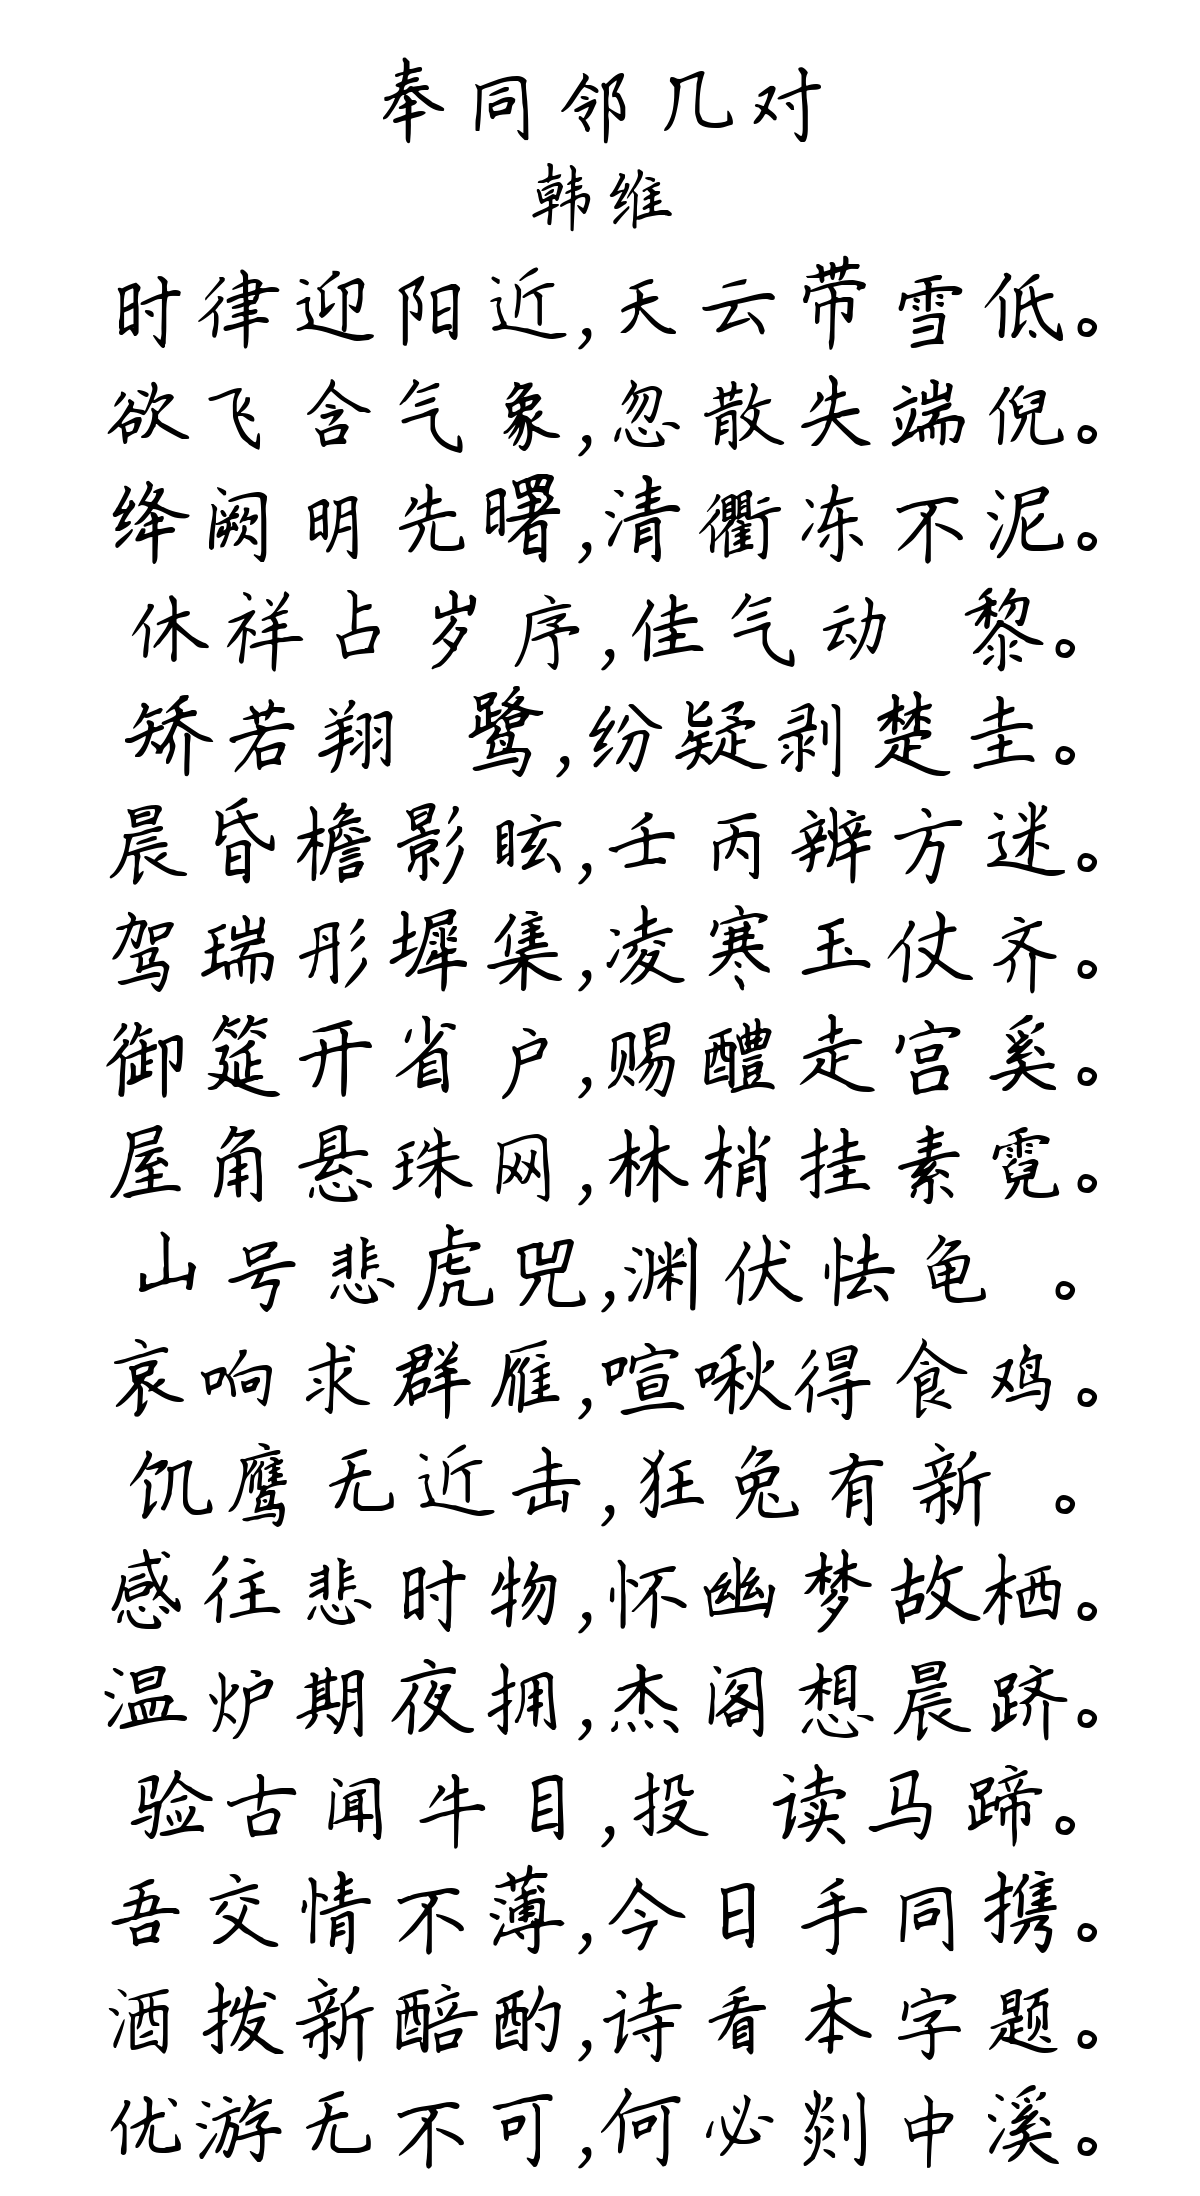 奉同邻几对
韩维
时律迎阳近,天云带雪低。
欲飞含气象,忽散失端倪。
绛阙明先曙,清衢冻不泥。
休祥占岁序,佳气动 黎。
矫若翔 鹭,纷疑剥楚圭。
晨昏檐影眩,壬丙辨方迷。
驾瑞彤墀集,凌寒玉仗齐。
御筵开省户,赐醴走宫奚。
屋角悬珠网,林梢挂素霓。
山号悲虎兕,渊伏怯龟 。
哀响求群雁,喧啾得食鸡。
饥鹰无近击,狂兔有新 。
感往悲时物,怀幽梦故栖。
温炉期夜拥,杰阁想晨跻。
验古闻牛目,投 读马蹄。
吾交情不薄,今日手同携。
酒拨新醅酌,诗看本字题。
优游无不可,何必剡中溪。